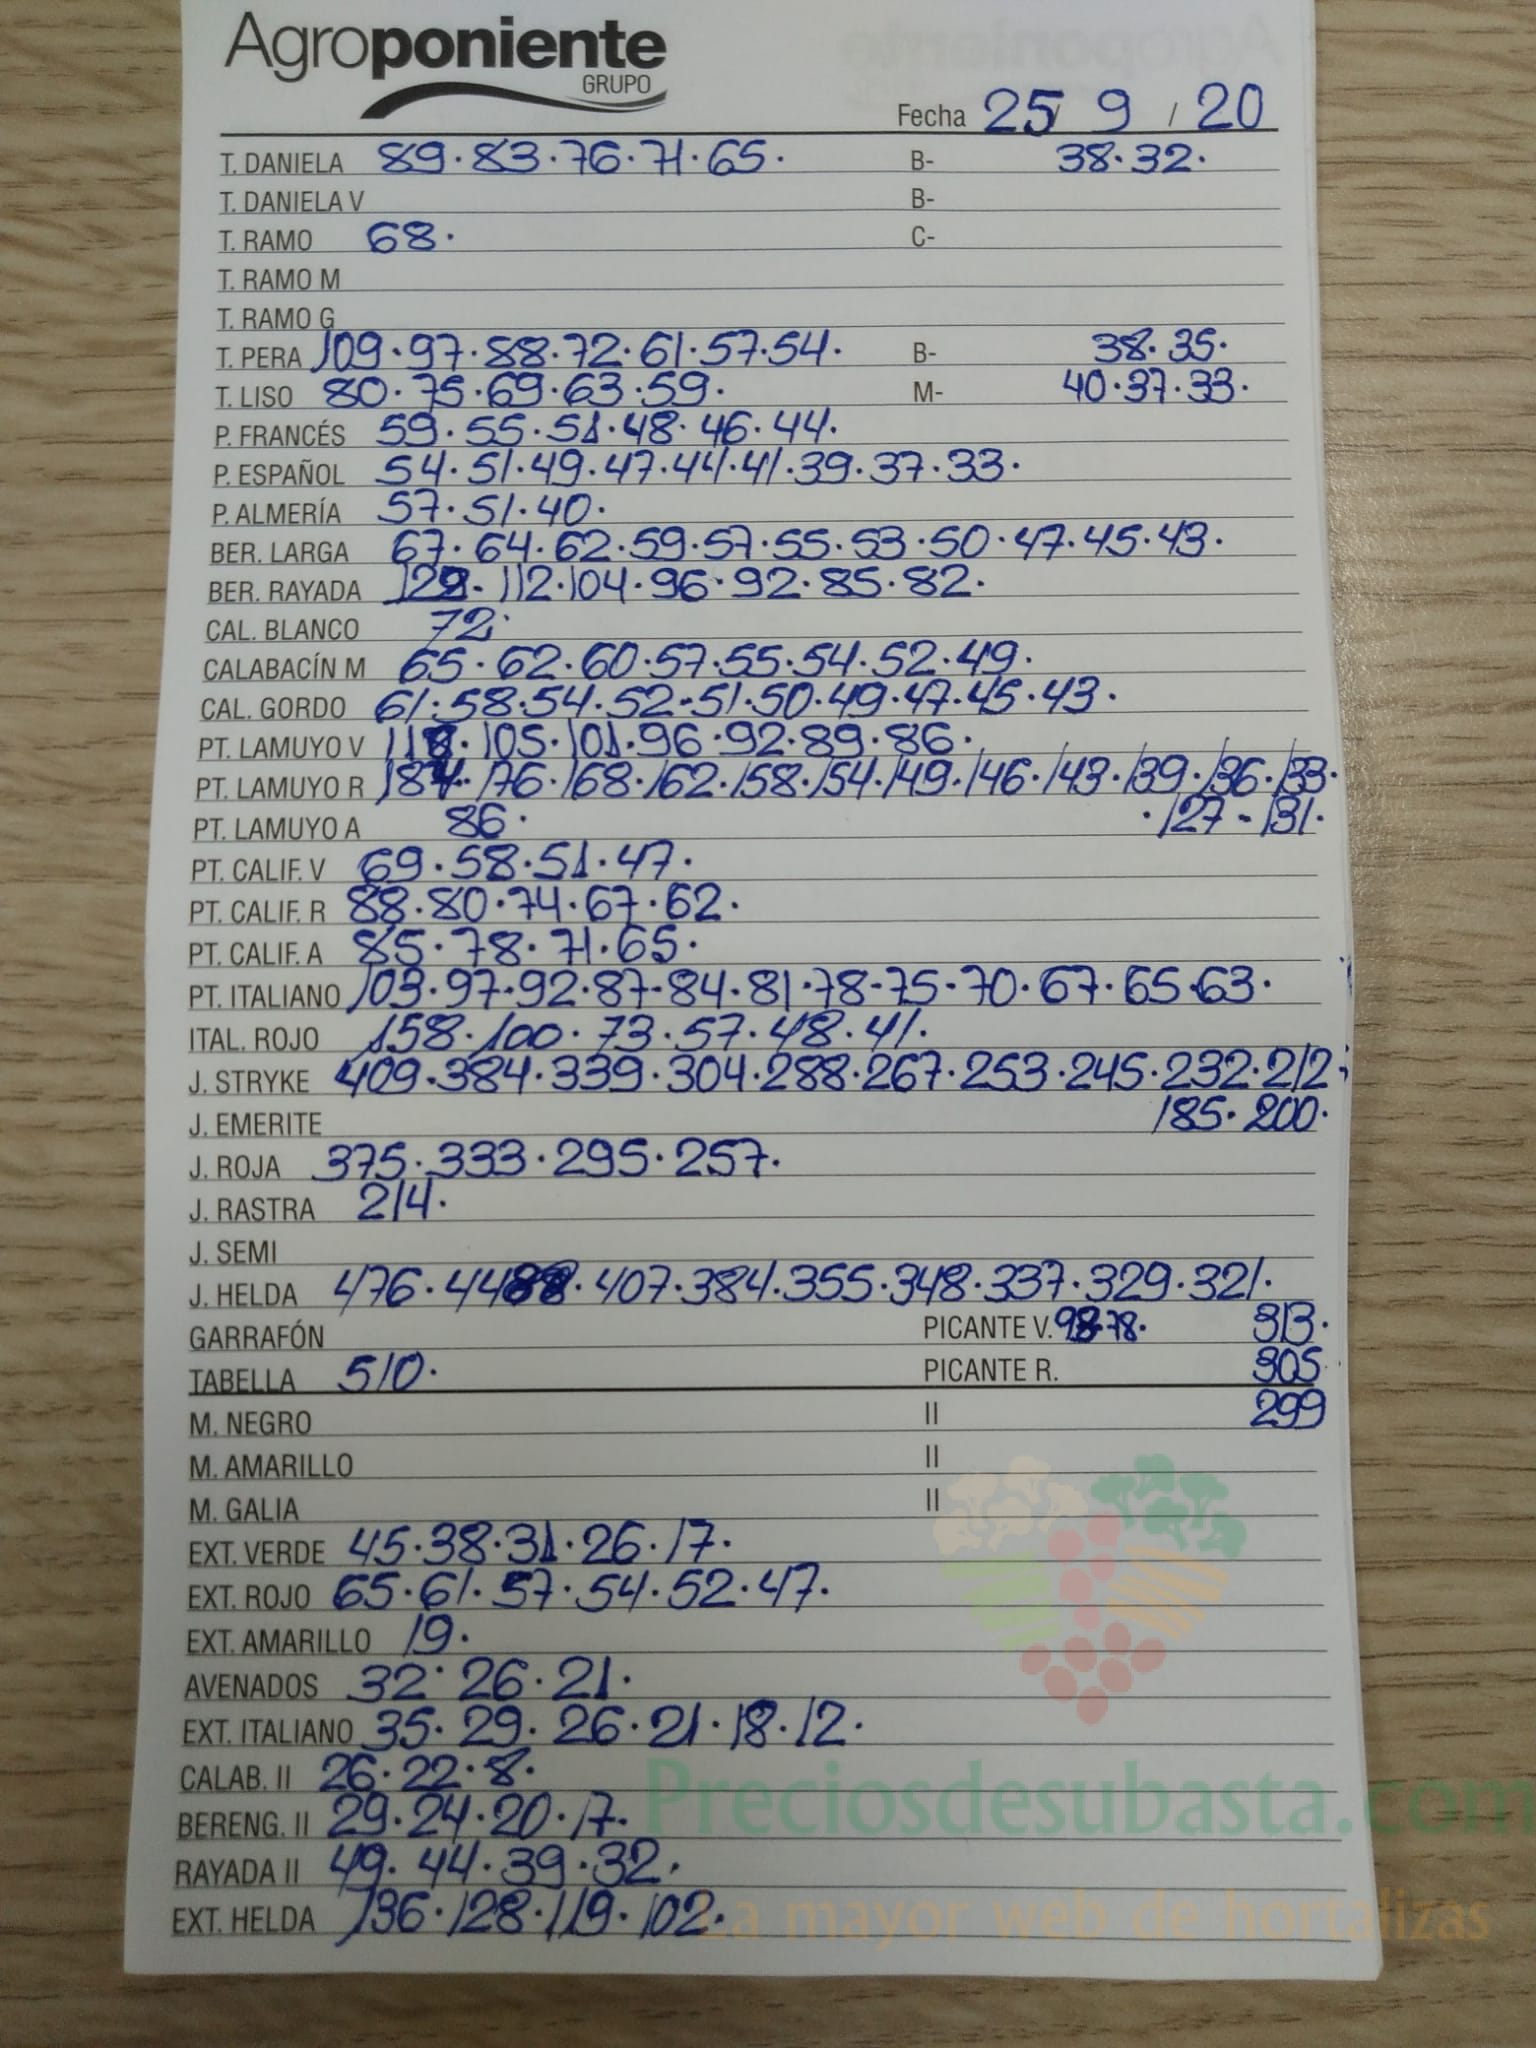 Agroponiente
GRUPO
Fecha 25/ 9 / 20
T. DANIELA 89·83·76·71·65· B- 38·32·
T. DANIELA V B-
T. RAMO 68· C-
T. RAMO M
T. RAMO G
T. PERA 109·97·88·72·61·57·54· B- 38·35·
T. LISO 80·75·69·63·59· M- 40·37·33·
P. FRANCÉS 59·55·51·48·46·44·
P. ESPAÑOL 54·51·49·47·44·41·39·37·33·
P. ALMERÍA 57·51·40·
BER. LARGA 67·64·62·59·57·55·53·50·47·45·43·
BER. RAYADA 112·104·96·92·85·82·
CAL. BLANCO 72·
CALABACÍN M 65·62·60·57·55·54·52·49·
CAL. GORDO 61·58·54·52·51·50·49·47·45·43·
PT. LAMUYO V 105·101·96·92·89·86·
PT. LAMUYO R 176·168·162·158·154·149·146·143·139·136·133·
PT. LAMUYO A 86· ·127-131·
PT. CALIF. V 69·58·51·47·
PT. CALIF. R 88·80·74·67·62·
PT. CALIF. A 85·78·71·65·
PT. ITALIANO 103·97·92·87·84·81·78·75·70·67·65·63·
ITAL. ROJO 158·100·73·57·48·41·
J. STRYKE 409·384·339·304·288·267·253·245·232·212·
J. EMERITE 185·200·
J. ROJA 375·333·295·257·
J. RASTRA 214·
J. SEMI
J. HELDA 476·407·384·355·348·337·329·321·
GARRAFÓN PICANTE V. 78· 313·
TABELLA 510· PICANTE R. 305
M. NEGRO II 299
M. AMARILLO II
M. GALIA II
EXT. VERDE 45·38·31·26·17·
EXT. ROJO 65·61·57·54·52·47·
EXT. AMARILLO 19·
AVENADOS 32·26·21·
EXT. ITALIANO 35·29·26·21·18·12·
CALAB. II 26·22·8·
Preciosdesubasta.com
BERENG. II 29·24·20·17·
RAYADA II 49·44·39·32·
EXT. HELDA 136·128·119·102·
La mayor web de hortalizas